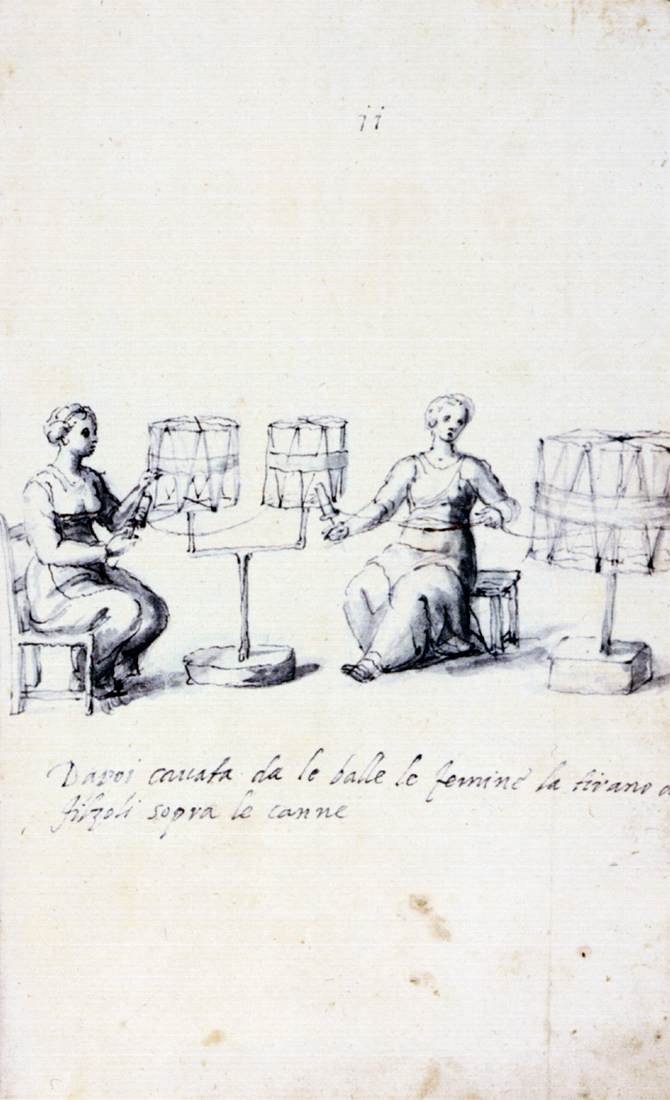 ii
Dapoi cavata da le balle le femine la tirano
filzoli sopra le canne